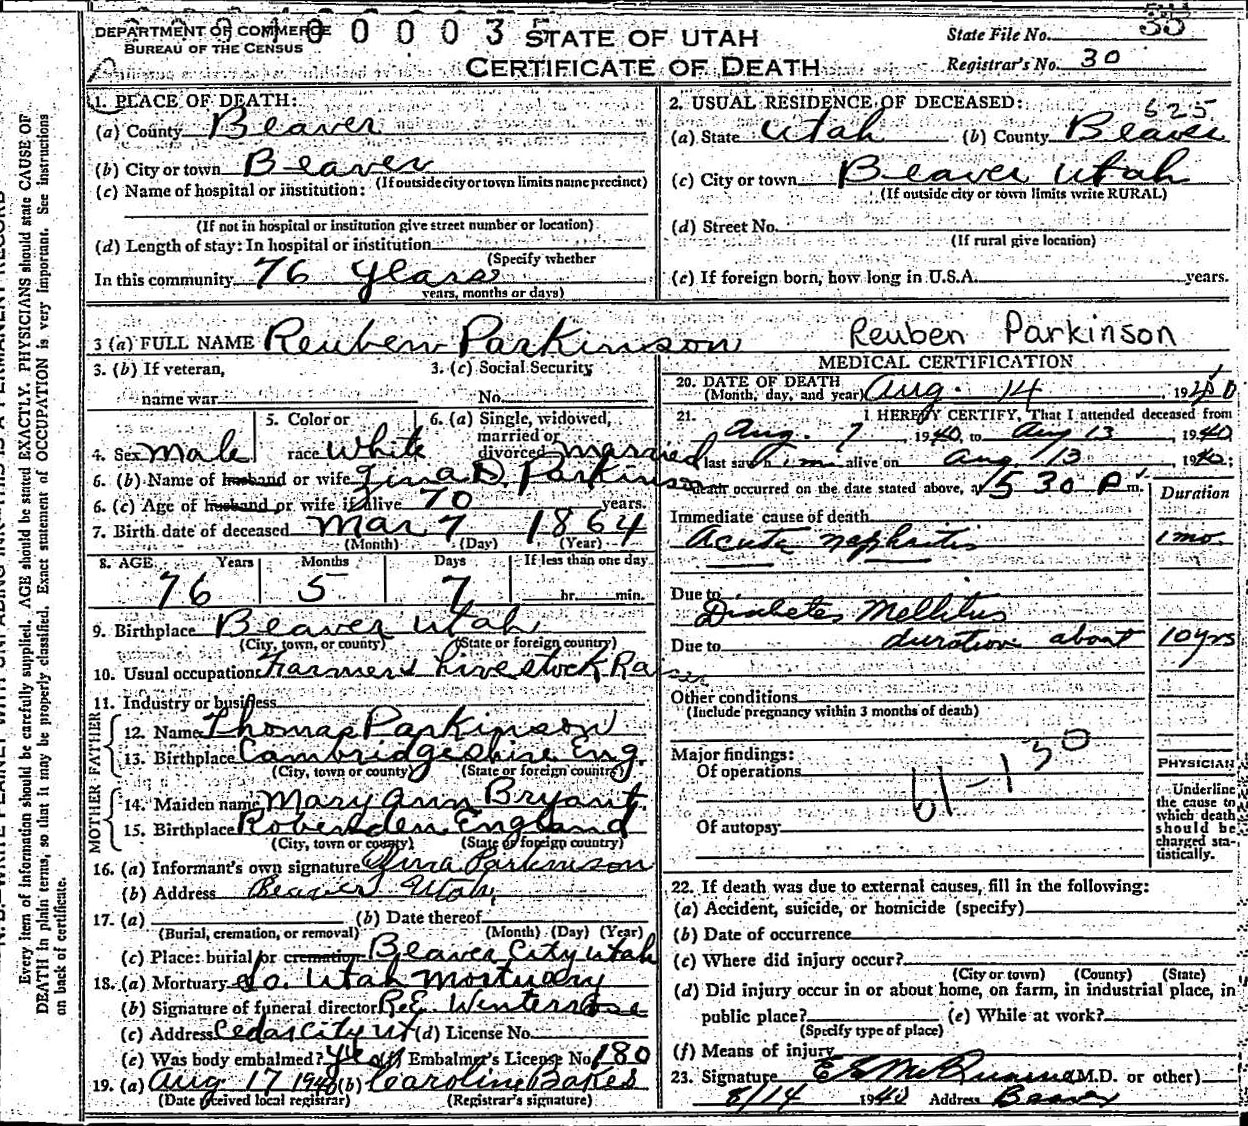 DEPARTMENT OF COMMERCE
BUREAU OF THE CENSUS
0 0 0 0 3 5
STATE OF UTAH
CERTIFICATE OF DEATH
State File No. 35
Registrar's No. 30
1. PLACE OF DEATH:
(a) County Beaver
(b) City or town Beaver
(If outside city or town limits name precinct)
(c) Name of hospital or institution:
(If not in hospital or institution give street number or location)
(d) Length of stay: In hospital or institution
(Specify whether
In this community 76 years
years, months or days)
2. USUAL RESIDENCE OF DECEASED:
625
(a) State Utah (b) County Beaver
(c) City or town Beaver Utah
(If outside city or town limits write RURAL)
(d) Street No.
(If rural give location)
(e) If foreign born, how long in U.S.A. years.
3 (a) FULL NAME Reuben Parkinson
Reuben Parkinson
3. (b) If veteran,
name war
3. (c) Social Security
No.
4. Sex Male
5. Color or
race White
6. (a) Single, widowed,
married or
divorced married
6. (b) Name of husband or wife Zina D. Parkinson
6. (c) Age of husband or wife if alive 70 years.
7. Birth date of deceased Mar 7 1864
(Month) (Day) (Year)
8. AGE Years Months Days If less than one day
76 5 7 hr. min.
9. Birthplace Beaver Utah
(City, town, or county) (State or foreign country)
10. Usual occupation Farmer & Livestock Raiser
11. Industry or business
FATHER
12. Name Thomas Parkinson
13. Birthplace Cambridgeshire Eng.
(City, town or county) (State or foreign country)
MOTHER
14. Maiden name Mary Ann Bryant
15. Birthplace England
(City, town or county) (State or foreign country)
16. (a) Informant's own signature Zina Parkinson
(b) Address Beaver Utah,
17. (a) (b) Date thereof
(Burial, cremation, or removal) (Month) (Day) (Year)
(c) Place: burial or cremation Beaver City Utah
18. (a) Mortuary So. Utah Mortuary
(b) Signature of funeral director R.E. Winterrose
(c) Address Cedar City Ut (d) License No.
(e) Was body embalmed? yes (f) Embalmer's License No. 180
19. (a) Aug 17 1940 (b) Caroline Bakes
(Date received local registrar) (Registrar's signature)
MEDICAL CERTIFICATION
20. DATE OF DEATH
(Month, day, and year) Aug. 14, 1940
21. I HEREBY CERTIFY, That I attended deceased from
Aug. 7 1940, to Aug 13 1940
I last saw him alive on Aug 13 1940;
death occurred on the date stated above, at 5 30 P m.
Duration
Immediate cause of death
Acute nephritis 1 mo.
Due to
Diabetes Mellitus
Due to duration about 10 yrs
Other conditions
(Include pregnancy within 3 months of death)
Major findings:
Of operations
61-130
Of autopsy
PHYSICIAN
Underline
the cause to
which death
should be
charged sta-
tistically.
22. If death was due to external causes, fill in the following:
(a) Accident, suicide, or homicide (specify)
(b) Date of occurrence
(c) Where did injury occur?
(City or town) (County) (State)
(d) Did injury occur in or about home, on farm, in industrial place, in
public place? (e) While at work?
(Specify type of place)
(f) Means of injury
23. Signature (M.D. or other)
8/14 1940 Address Beaver
Every item of information should be carefully supplied. AGE should be stated EXACTLY. PHYSICIANS should state CAUSE OF
DEATH in plain terms, so that it may be properly classified. Exact statement of OCCUPATION is very important. See instructions
on back of certificate.